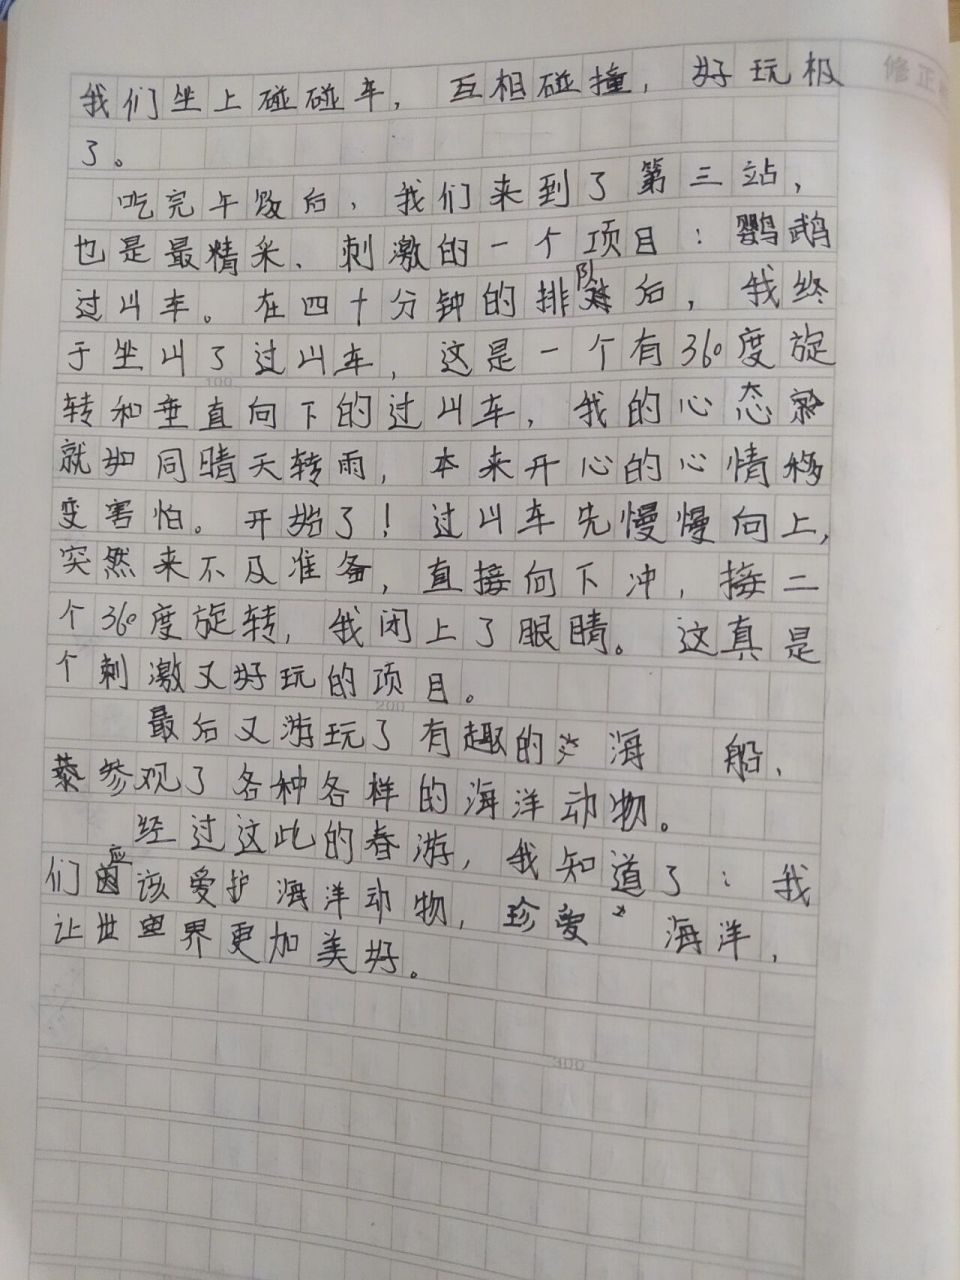 修正
我们坐上碰碰车，互相碰撞，好玩极
了。
吃完午饭后，我们来到了第三站，
也是最精采、刺激的一个项目：鹦鹉
过山车。在四十分钟的排队后，我终
于坐山了过山车，这是一个有360度旋
转和垂直向下的过山车，我的心态
就如同晴天转雨，本来开心的心情移
变害怕。开始了！过山车先慢慢向上，
突然来不及准备，直接向下冲，接二
个360度旋转，我闭上了眼睛。这真是
100
个刺激又好玩的项目。
200
最后又游玩了有趣的海船，
参观了各种各样的海洋动物。
经过这此的春游，我知道了：我
们应该爱护海洋动物，珍爱海洋，
让世界更加美好。
300